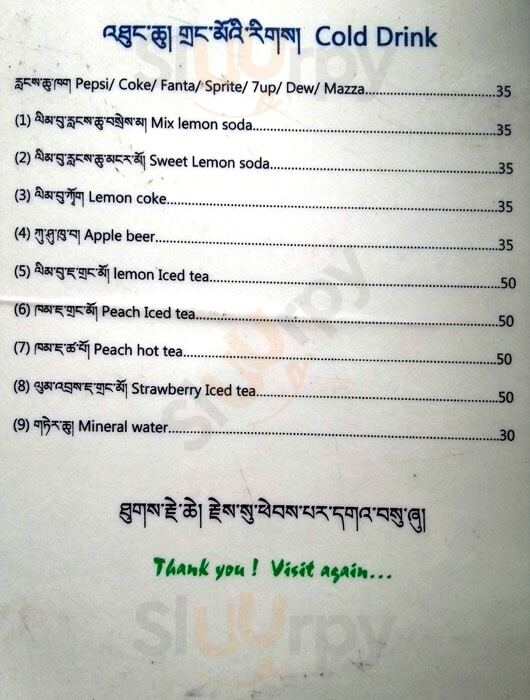 འཐུང་ཆུ། གྲང་མོའི་རིགས། Cold Drink
རླངས་ཆུ་ཁག Pepsi/ Coke/ Fanta/ Sprite/ 7up/ Dew/ Mazza...35
(1) ལིམ་བུ་རླངས་ཆུ་བསྲེས་མ། Mix lemon soda...35
(2) ལིམ་བུ་རླངས་ཆུ་མངར་མོ། Sweet Lemon soda...35
(3) ལིམ་བུ་ཀོག Lemon coke...35
(4) ཀུ་ཤུ་ཁུ་བ། Apple beer...35
(5) ལིམ་བུ་ཇ་གྲང་མོ། lemon Iced tea...50
(6) ཁམ་ཇ་གྲང་མོ། Peach Iced tea...50
(7) ཁམ་ཇ་ཚ་པོ། Peach hot tea...50
(8) ལུམ་འབྲས་ཇ་གྲང་མོ། Strawberry Iced tea...50
(9) གཏེར་ཆུ། Mineral water...30
ཐུགས་རྗེ་ཆེ། རྗེས་སུ་ཕེབས་པར་དགའ་བསུ་ཞུ།
Thank you ! Visit again...
Sluurpy
Sluurpy
Sluurpy
Sluurpy